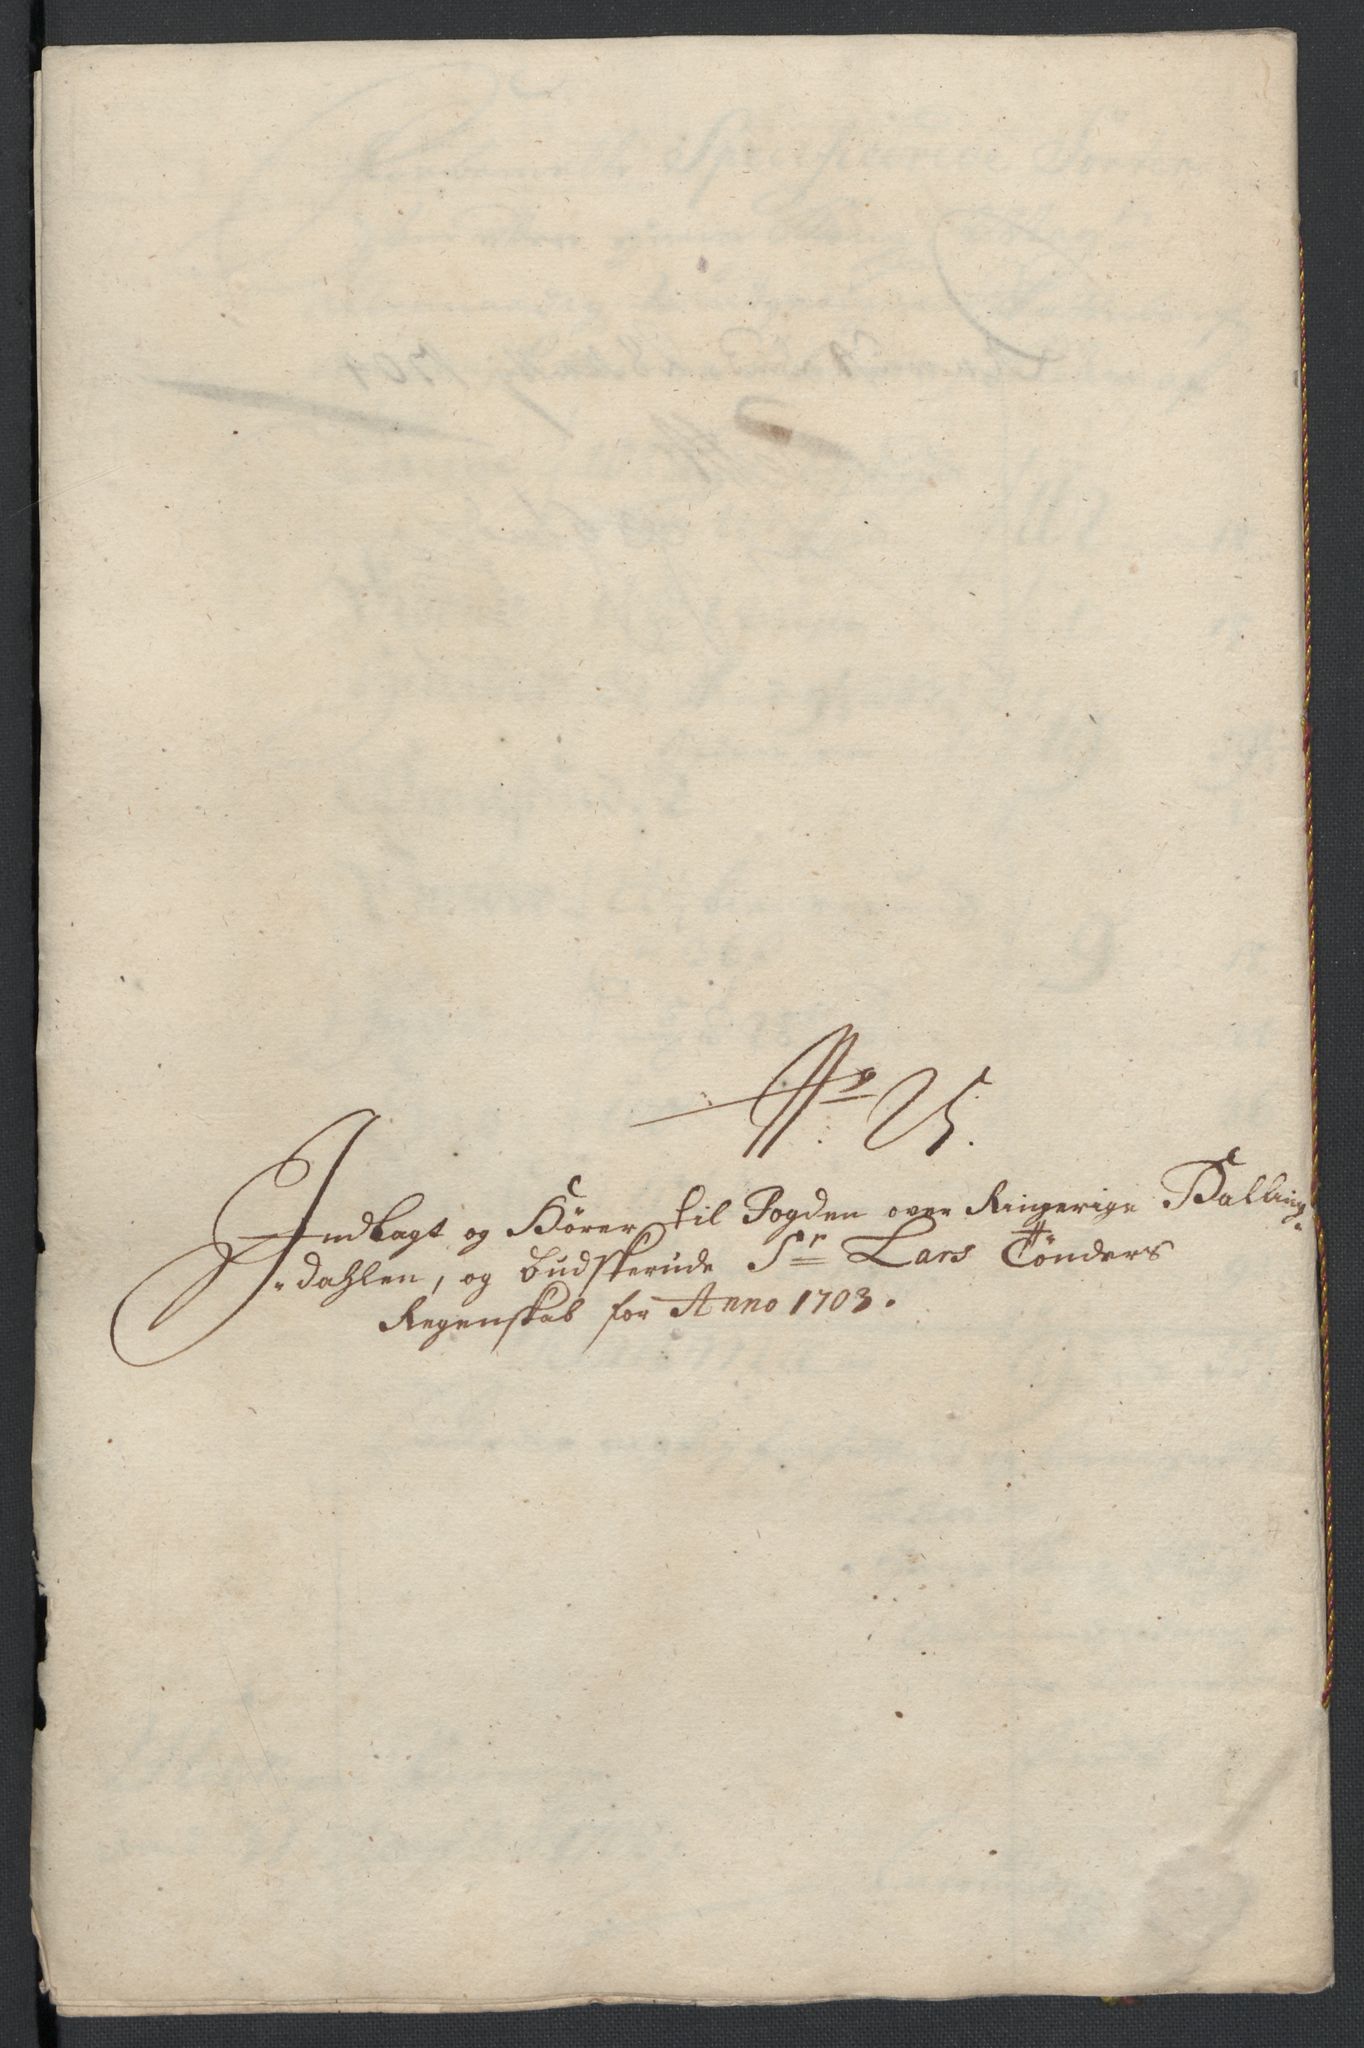 No 25.
Indlagt og Hörer til Fogden over Ringerige Halling-
-dahlen, og Budskerude Sr Lars Tönders
Regenskab for Anno 1703.